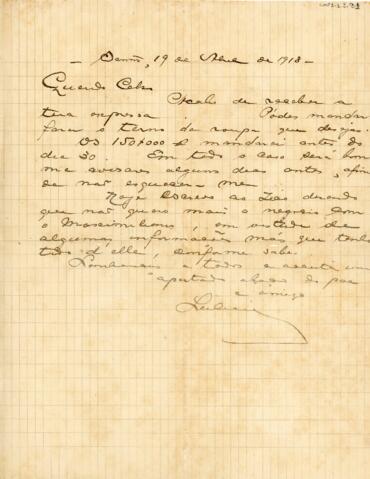 19 de Abril de 1918 -
Querido
Acabo de receber a
tua Podes mandar
fazer o terno de roupa que desejas.
Os 150$000 mandarei antes do
dia 30. Em todo o caso será bom
me avisares alguns dias antes, afim
de não esquecer-me.
Hoje escrevo ao dizendo
que não quero mais o negocio com
o em vista de
algumas informações más que tenho
tido d'elle, conforme sabe.
Lembranças a todos e aceita um
apertado abraço do pae
e amigo